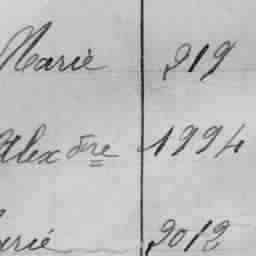 Marie 219
Alexdre 1994
arie 2012